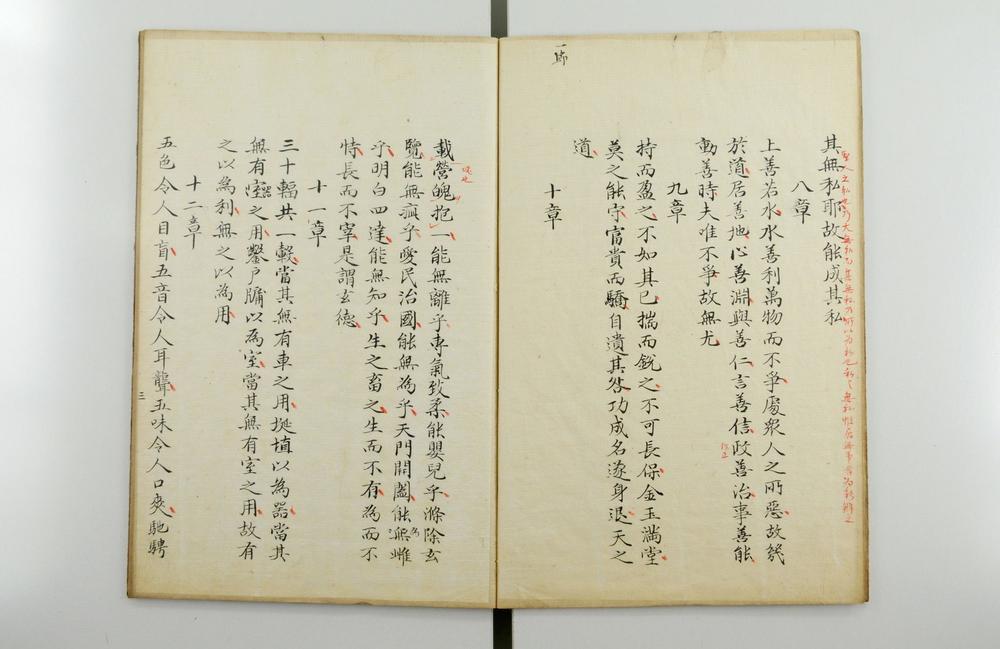 一節
其無私耶故能成其私
八章
上善若水水善利萬物而不爭處衆人之所惡故幾
於道居善地心善淵與善仁言善信政善治事善能
動善時夫唯不爭故無尤
九章
持而盈之不如其已揣而銳之不可長保金玉滿堂
莫之能守富貴而驕自遺其咎功成名遂身退天之
道
十章
載營魄抱一能無離乎專氣致柔能嬰兒乎滌除玄
覽能無疵乎愛民治國能無為乎天門開闔能無雌
乎明白四達能無知乎生之畜之生而不有為而不
恃長而不宰是謂玄德
十一章
三十輻共一轂當其無有車之用埏埴以為器當其
無有器之用鑿戶牖以為室當其無有室之用故有
之以為利無之以為用
十二章
五色令人目盲五音令人耳聾五味令人口爽馳騁
三